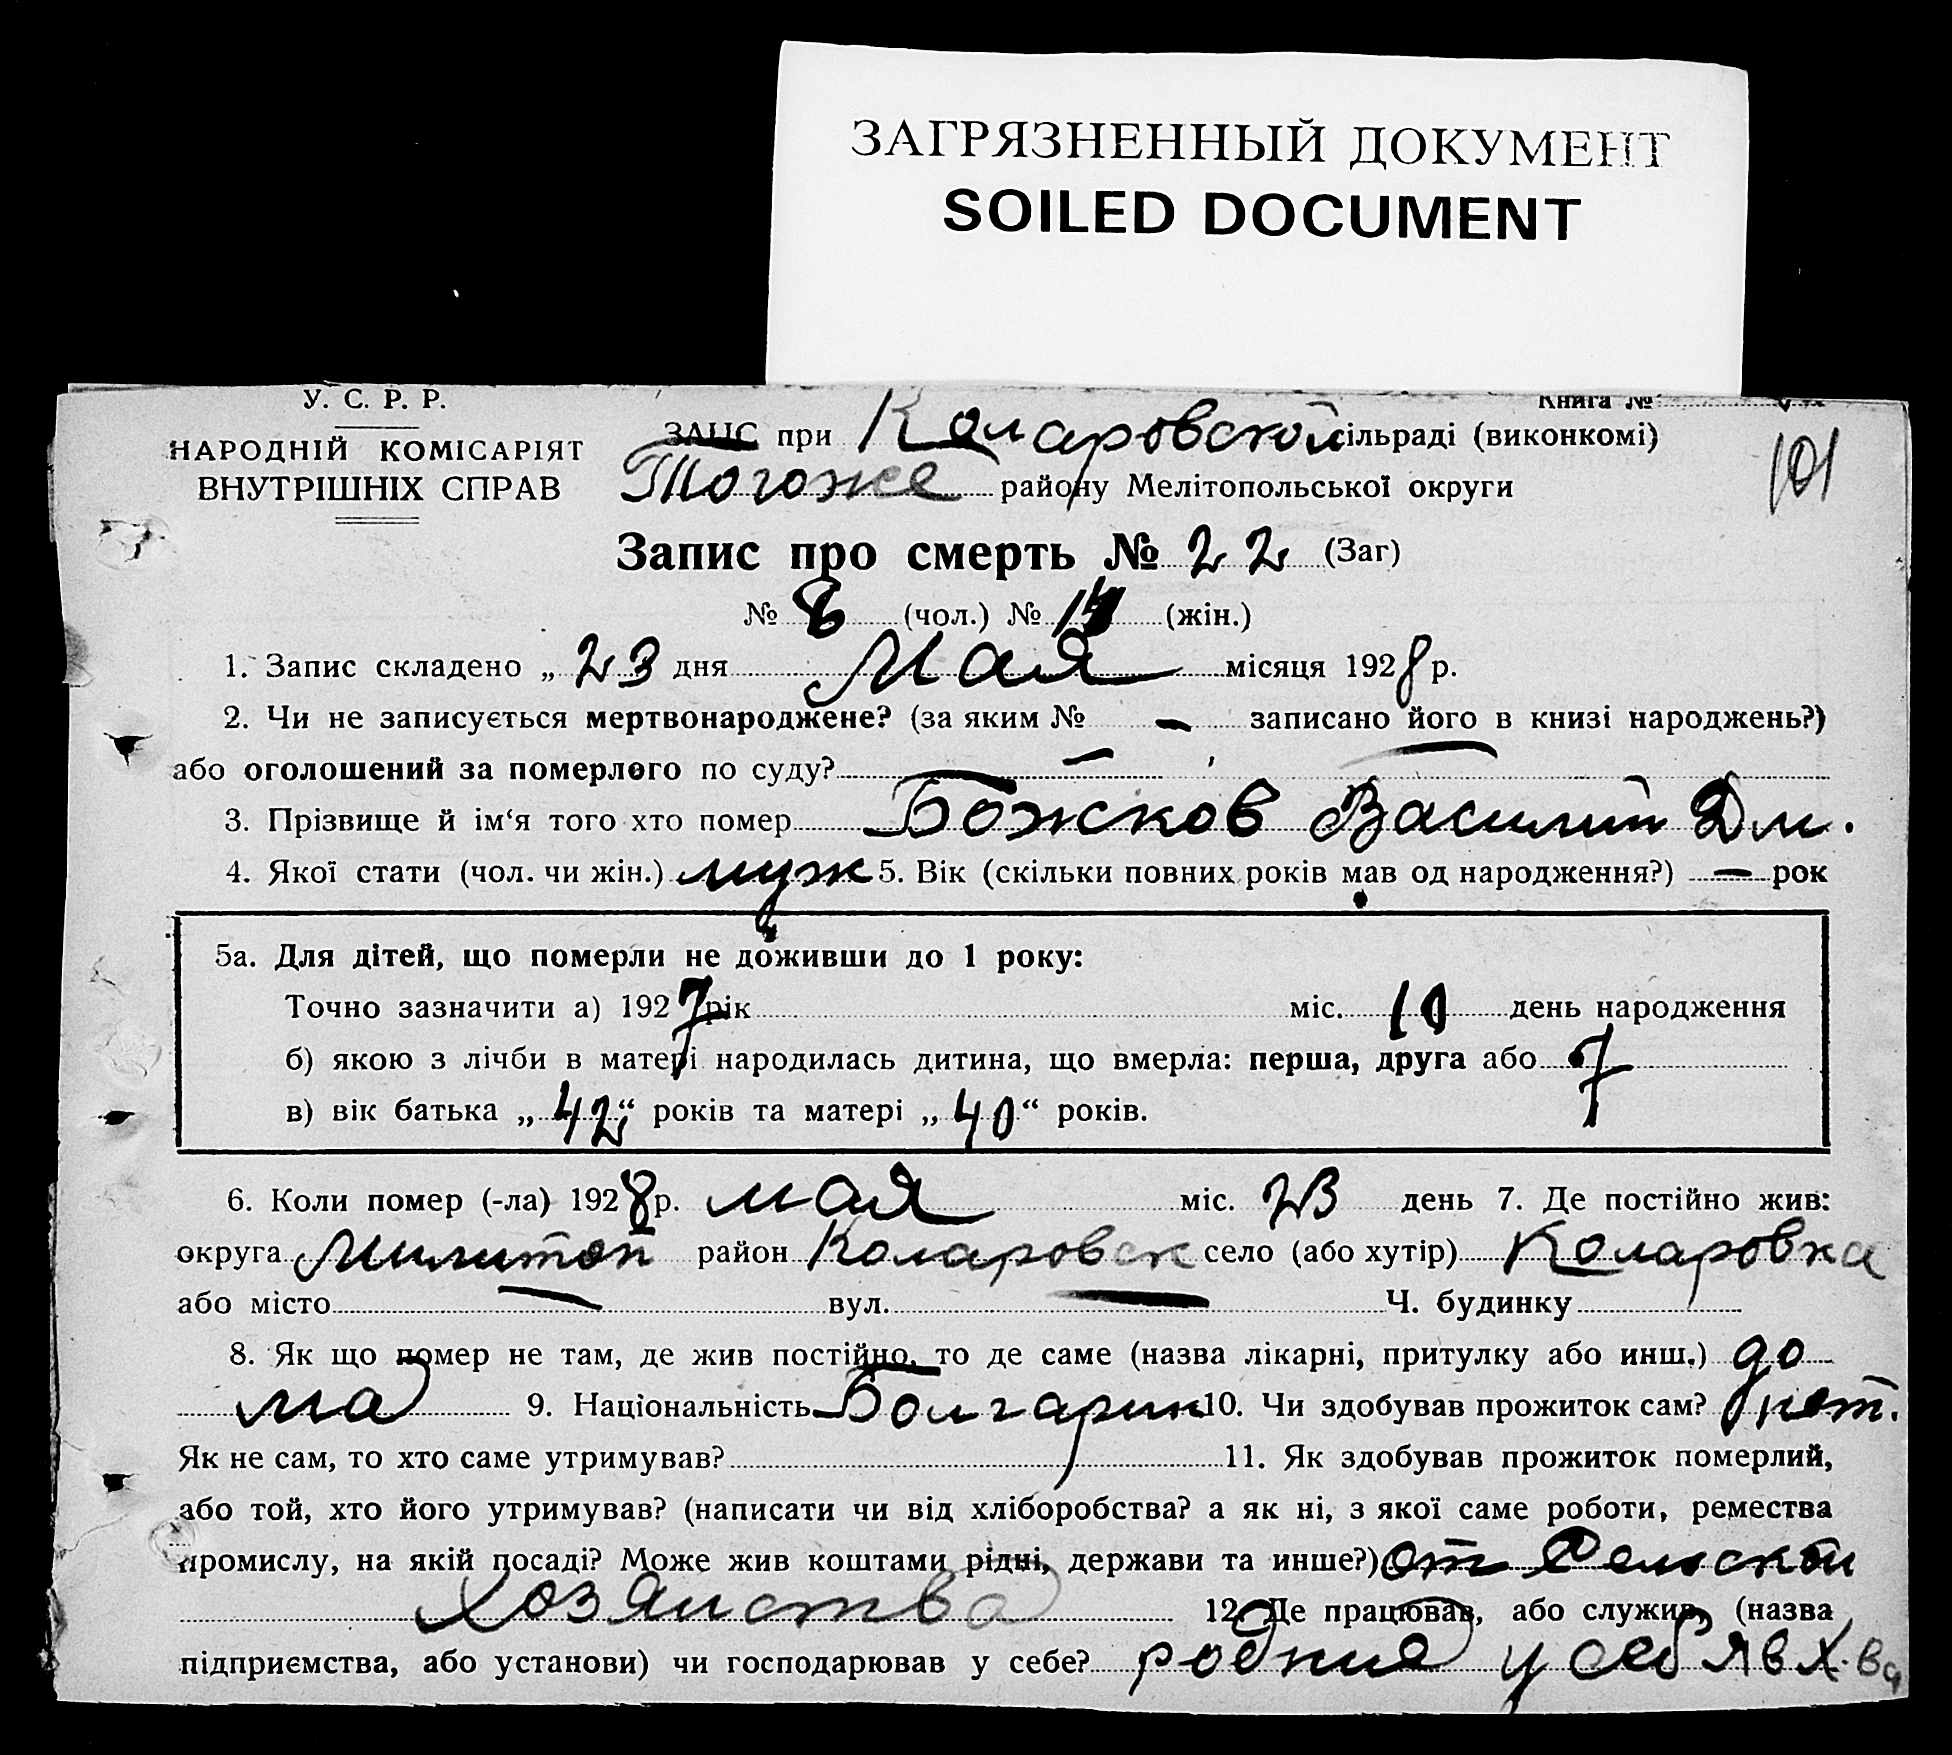 ЗАГРЯЗНЕННЫЙ ДОКУМЕНТ
SOILED DOCUMENT
У. С. Р. Р.
НАРОДНІЙ КОМІСАРІЯТ
ВНУТРІШНІХ СПРАВ
Книга №
ЗАГС при Коларовской сільраді (виконкомі)
101
Тогоже району Мелітопольської округи
Запис про смерть № 22 (Заг)
№ 8 (чол.) № 14 (жін.)
1. Запис складено „ 23 дня Мая місяця 1928 р.
2. Чи не записується мертвонароджене? (за яким № — записано його в книзі народжень?)
або оголошений за померлого по суду? —
3. Прізвище й ім‘я того хто помер Божков Василий Дм.
4. Якої стати (чол. чи жін.) муж 5. Вік (скільки повних років мав од народження?) — рок
5а. Для дітей, що померли не доживши до 1 року:
Точно зазначити а) 1927 рік міс. 10 день народження
б) якою з лічби в матері народилась дитина, що вмерла: перша, друга або 7
в) вік батька „ 42 “ років та матері „ 40 “ років.
6. Коли помер (-ла) 1928 р. мая міс. 23 день 7. Де постійно жив:
округа Милитоп район Коларовск село (або хутір) Коларовка
або місто — вул. — Ч. будинку
8. Як що помер не там, де жив постійно, то де саме (назва лікарні, притулку або инш.) до
ма 9. Національність Болгарин 10. Чи здобував прожиток сам? нет.
Як не сам, то хто саме утримував? 11. Як здобував прожиток померлий,
або той, хто його утримував? (написати чи від хліборобства? а як ні, з якої саме роботи, ремества
промислу, на якій посаді? Може жив коштами рідні, держави та инше?) от Сельской
хозяиства 12. Де працював, або служив, (назва
підприємства, або установи) чи господарював у себе? родние у себя в х.ва